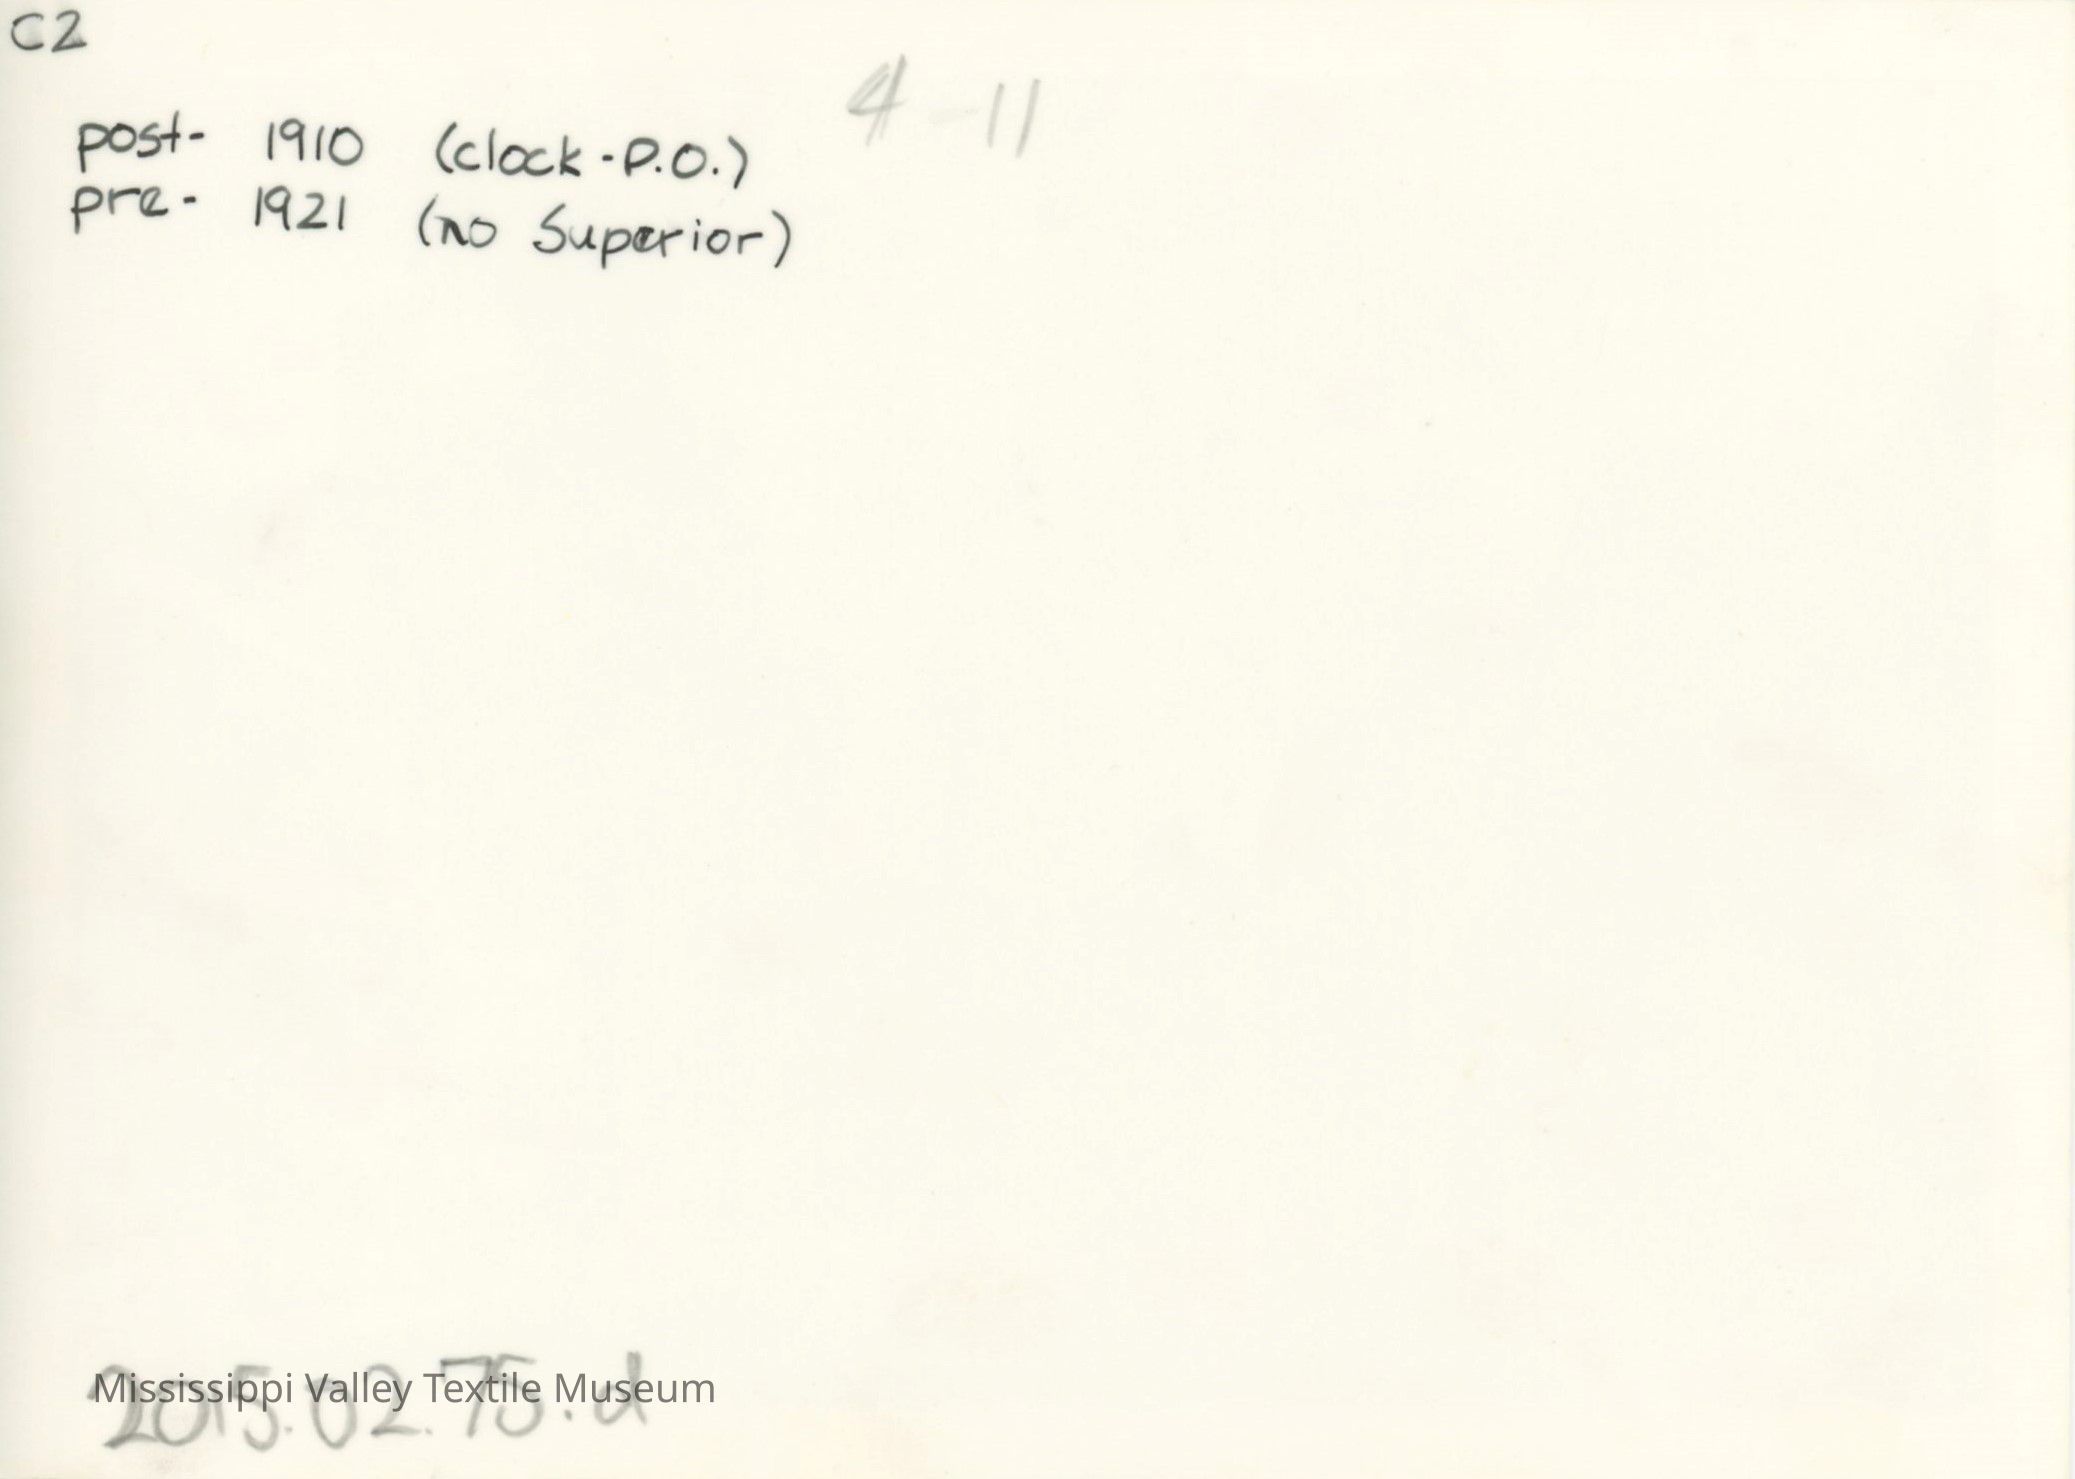 C2
4-11
post- 1910 (clock-P.O.)
pre- 1921 (no Superior)
Mississippi Valley Textile Museum
2015.02.75.d